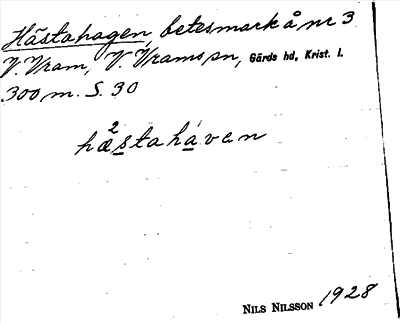 Hästahagen, betesmark å nr 3
V. Vram, V. Vrams sn, Gärds hd, Krist. l.
300 m. S. 30
hæ²stahá̱ven
NILS NILSSON 1928